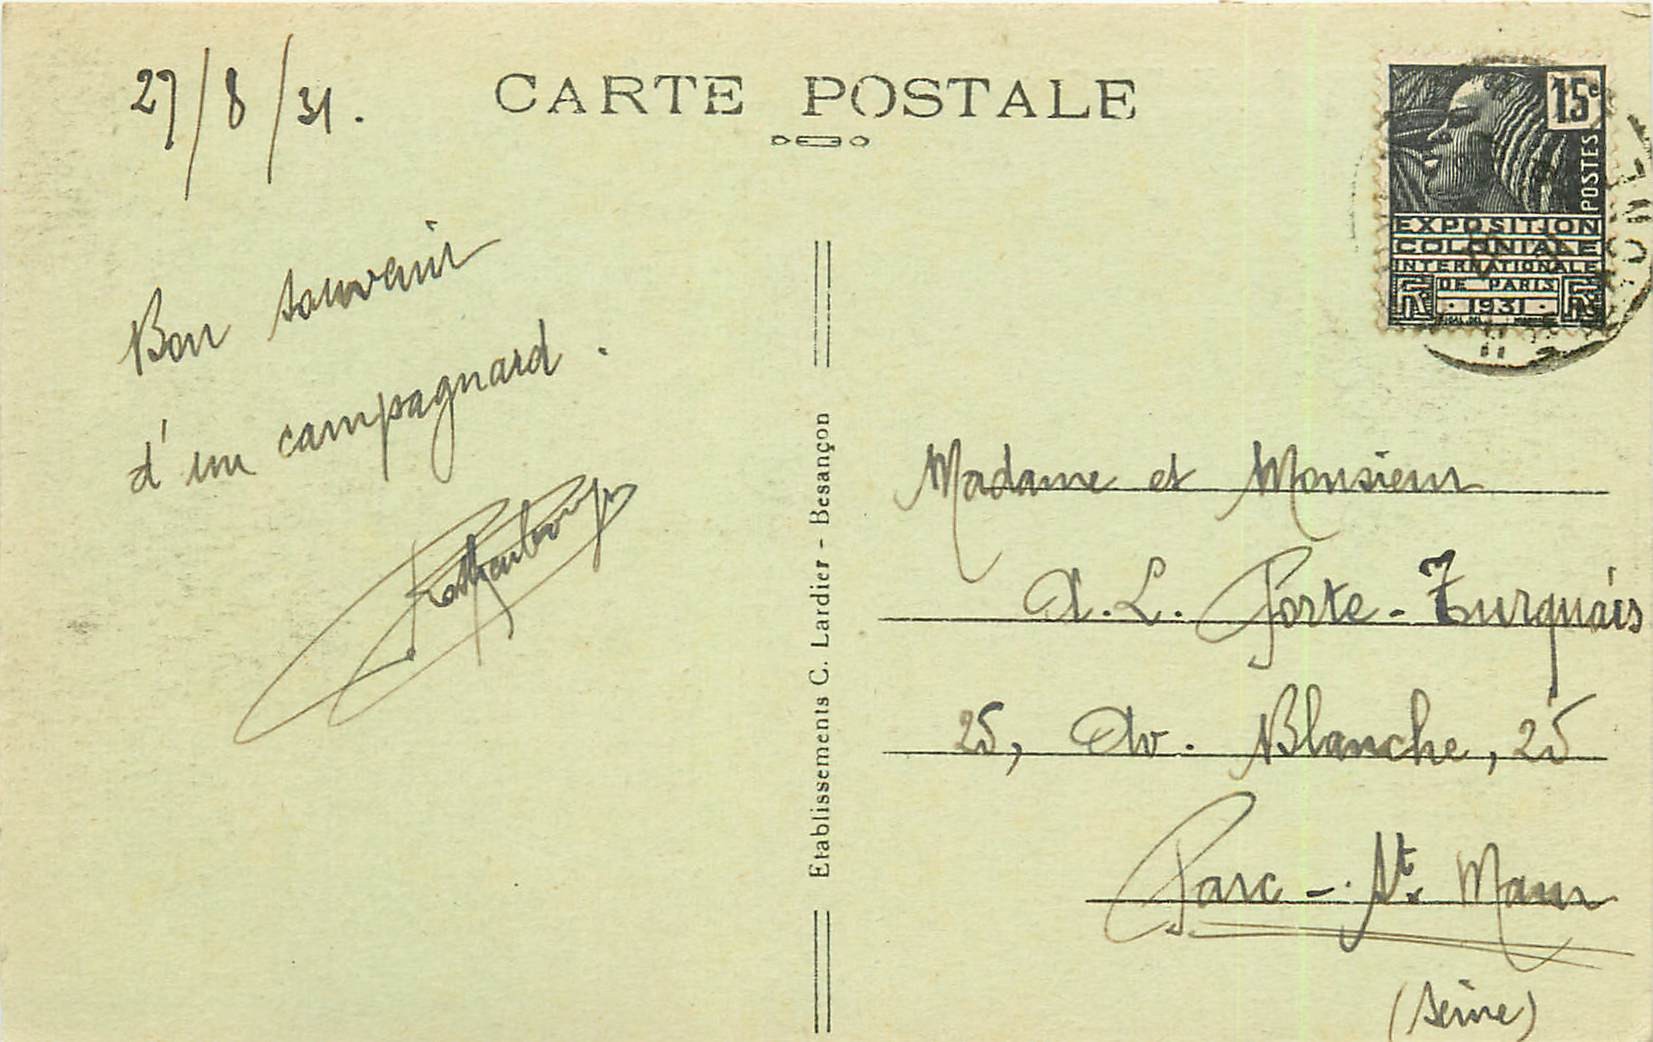 27/8/31.
CARTE POSTALE
15c
POSTES
EXPOSITION
COLONIALE
INTERNATIONALE
DE PARIS
RF · 1931 · RF
Bon souvenir
d'un campagnard.
Etablissements C. Lardier - Besançon
Madame et Monsieur
A. L. Porte-Turquais
25, Av. Blanche, 25
Parc - St. Maur
(Seine)